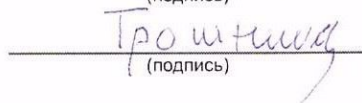 (подпись)
Трошнина
(подпись)